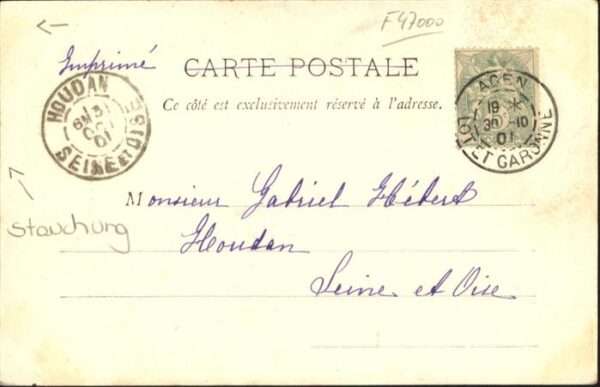 F47000
Imprimé
CARTE POSTALE
Ce côté est exclusivement réservé à l'adresse.
HOUDAN
31
OCT
01
SEINE ET OISE
AGEN
19 *
30 -10
01
LOT ET GARONNE
Stauchung
Monsieur Gabriel Hébert
Houdan
Seine et Oise